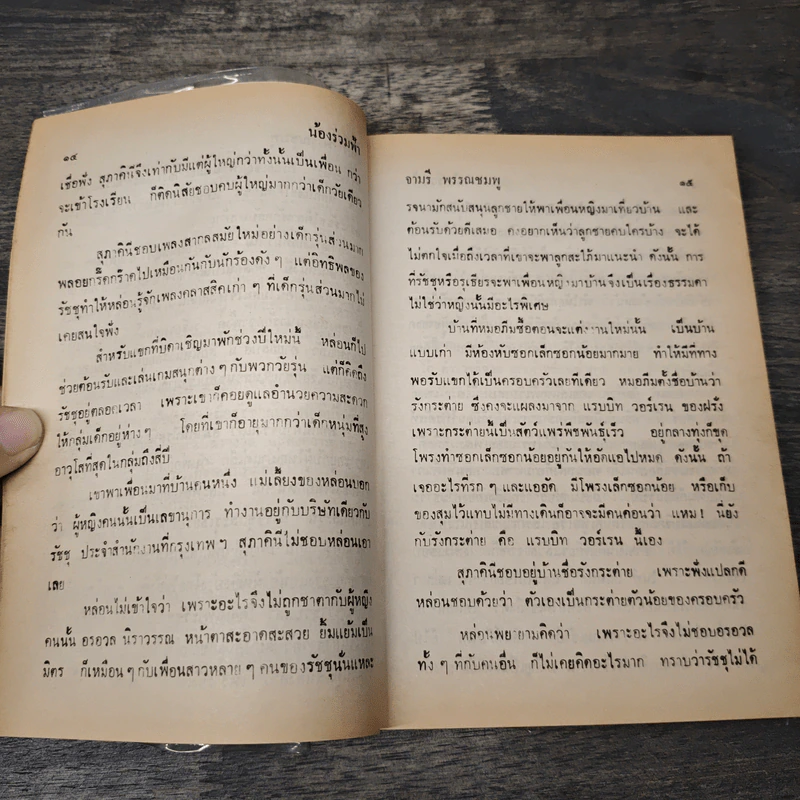 ๑๔
น้องร่วมฟ้า
เชื่อฟัง สุภาคินีจึงเท่ากับมีแต่ผู้ใหญ่กว่าทั้งนั้นเป็นเพื่อน กว่า
จะเข้าโรงเรียน ก็ติดนิสัยชอบคบผู้ใหญ่มากกว่าเด็กวัยเดียว
กัน
สุภาคินีชอบเพลงสากลสมัยใหม่อย่างเด็กรุ่นส่วนมาก
พลอยกรี๊ดกร๊าดไปเหมือนกันกับนักร้องดัง ๆ แต่อิทธิพลของ
รัชชุทำให้หล่อนรู้จักเพลงคลาสสิคเก่า ๆ ที่เด็กรุ่นส่วนมากไม่
เคยสนใจฟัง
สำหรับแขกที่บิดาเชิญมาพักช่วงปีใหม่นี้ หล่อนก็ไป
ช่วยต้อนรับและเล่นเกมสนุกต่าง ๆ กับพวกวัยรุ่น แต่ก็คิดถึง
รัชชุอยู่ตลอกเวลา เพราะเขาก็คอยดูแลอำนวยความสะดวก
ให้กลุ่มเด็กอยู่ห่าง ๆ โดยที่เขาก็อายุมากกว่าเด็กหนุ่มที่สูง
อาวุโสที่สุดในกลุ่มถึงสี่ปี
เขาพาเพื่อนมาที่บ้านคนหนึ่ง แม่เลี้ยงของหล่อนบอก
ว่า ผู้หญิงคนนั้นเป็นเลขานุการ ทำงานอยู่กับบริษัทเดียวกับ
รัชชุ ประจำสำนักงานที่กรุงเทพฯ สุภาคินีไม่ชอบหล่อนเอา
เลย
หล่อนไม่เข้าใจว่า เพราะอะไรจึงไม่ถูกชาตากับผู้หญิง
คนนั้น อรอวล นิราวรรณ หน้าตาสะอาดสะสวย ยิ้มแย้มเป็น
มิตร ก็เหมือน ๆ กับเพื่อนสาวหลาย ๆ คนของรัชชุนั่นแหละ
จามรี พรรณชมพู
๑๕
รจนามักสนับสนุนลูกชายให้พาเพื่อนหญิงมาเที่ยวบ้าน และ
ต้อนรับด้วยดีเสมอ คงอยากเห็นว่าลูกชายคบใครบ้าง จะได้
ไม่ตกใจเมื่อถึงเวลาที่เขาจะพาลูกสะใภ้มาแนะนำ ดังนั้น การ
ที่รัชชุหรือรุเธียรจะพาเพื่อนหญิงมาบ้านจึงเป็นเรื่องธรรมดา
ไม่ใช่ว่าหญิงนั้นมีอะไรพิเศษ
บ้านที่หมอภีมซื้อตอนจะแต่งงานใหม่นั้น เป็นบ้าน
แบบเก่า มีห้องหับซอกเล็กซอกน้อยมากมาย ทำให้มีที่ทาง
พอรับแขกได้เป็นครอบครัวเลยทีเดียว หมอภีมตั้งชื่อบ้านว่า
รังกระต่าย ซึ่งคงจะแผลงมาจาก แรบบิท วอร์เรน ของฝรั่ง
เพราะกระต่ายนี้เป็นสัตว์แพร่พืชพันธุ์เร็ว อยู่กลางทุ่งก็ขุด
โพรงทำซอกเล็กซอกน้อยอยู่กันให้อัดแอไปหมด ดังนั้น ถ้า
เจออะไรที่รก ๆ และแออัด มีโพรงเล็กซอกน้อย หรือเก็บ
ของสุมไว้แทบไม่มีทางเดินก็อาจจะมีคนค่อนว่า แหม ! นี่ยัง
กับรังกระต่าย คือ แรบบิท วอร์เรน นี้เอง
สุภาคินีชอบอยู่บ้านชื่อรังกระต่าย เพราะฟังแปลกดี
หล่อนชอบด้วยว่า ตัวเองเป็นกระต่ายตัวน้อยของครอบครัว
หล่อนพยายามคิดว่า เพราะอะไรจึงไม่ชอบอรอวล
ทั้ง ๆ ที่กับคนอื่น ก็ไม่เคยคิดอะไรมาก ทราบว่ารัชชุไม่ได้